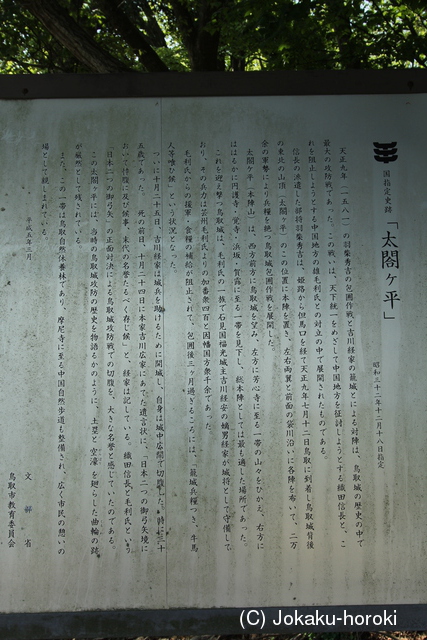 国指定史跡 「太閤ヶ平」
昭和三十二年十二月十八日指定
天正九年（一五八一）の羽柴秀吉の包囲作戦と吉川経家の籠城とによる対陣は、鳥取城の歴史の中で
最大の攻防戦であった。この戦いは、天下統一をめざして中国地方を征討しようとする織田信長と、こ
れを阻止しようとする中国地方の雄毛利氏との対立の中で展開されたものである。
信長の派遣した部将羽柴秀吉は、姫路から但馬口を経て天正九年七月十二日鳥取に到着し、鳥取城背後
の東北の山頂（太閤ヶ平）のこの位置に本陣を置き、左右両翼と前面の袋川沿いに各陣を布いて、二万
余の軍勢により兵糧を絶つ鳥取城包囲作戦を展開した。
太閤ヶ平（本陣山）は、西前方に鳥取城を望み、左方に芳心寺に至る一帯の山々をひかえ、右方に
はるかに円護寺・覚寺・浜坂・賀露に至る一帯を見下し、総本陣としては最も適した場所であった。
これを迎え撃つ鳥取城は、毛利氏の一族で石見国福光城主吉川経安の嫡男経家が城将として守備して
おり、その兵力は芸州毛利氏よりの加番衆四百と因幡国方衆千余であった。
毛利氏からの援軍・食糧の補給が阻止されて、包囲後三ヶ月過ぎるころには、「籠城兵糧つき、牛馬
人等喰ひ候」という状況となった。
ついに十月二十五日、吉川経家は城兵を助けるために開城し、自身は城中広間で切腹した。時に三十
五歳であった。死の前日、十月二十四日に本家吉川広家にあてた遺言状に、「日本二つの御弓矢境に
おいて忰腹に及び候事、末代の名誉たるべく存じ候」と、経家は記している。織田信長と毛利氏という
日本二つの御弓矢の正面対決による鳥取城攻防戦での切腹を、大きな名誉と感じていたのである。
この太閤ヶ平には、当時の鳥取城攻防の歴史を物語るかのように、土塁と空濠を廻らした曲輪の跡
が厳然として残されている。
また、この一帯は鳥取自然休養林であり、摩尼寺に至る中国自然歩道も整備され、広く市民の憩いの
場として親しまれている。
平成五年三月
文部省
鳥取市教育委員会
(C) Jokaku-horoki